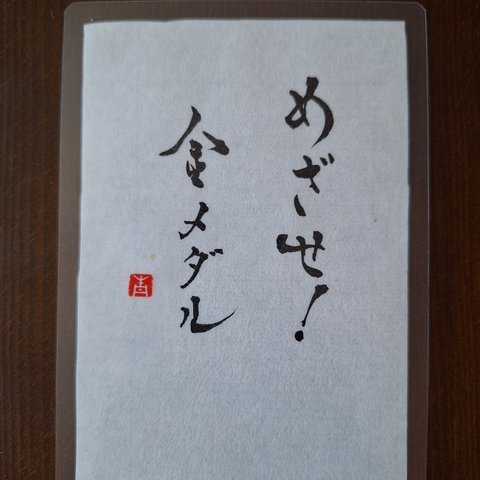 めざせ!
金メダル